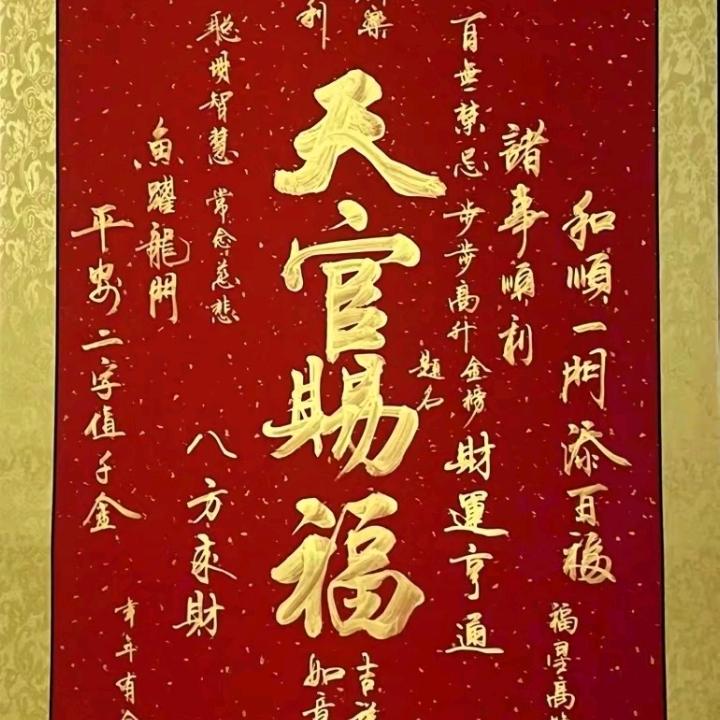 和順一門添百福
福壽高
諸事順利
百無禁忌 步步高升 金榜
題名
財運亨通
樂
天官賜福
吉祥
如意
利
聰明智慧 常念慈悲
八方來財
魚躍龍門
平安二字值千金
年年有余